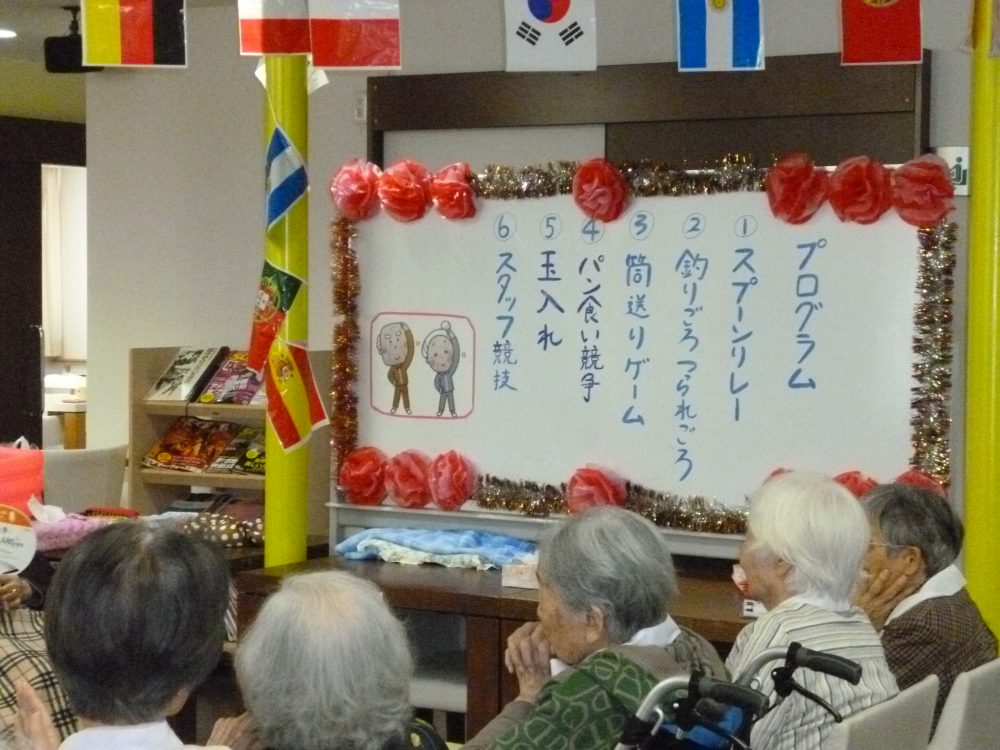 プログラム
① スプーンリレー
② 釣りごろつられごろ
③ 筒送りゲーム
④ パン食い競争
⑤ 玉入れ
⑥ スタッフ競技